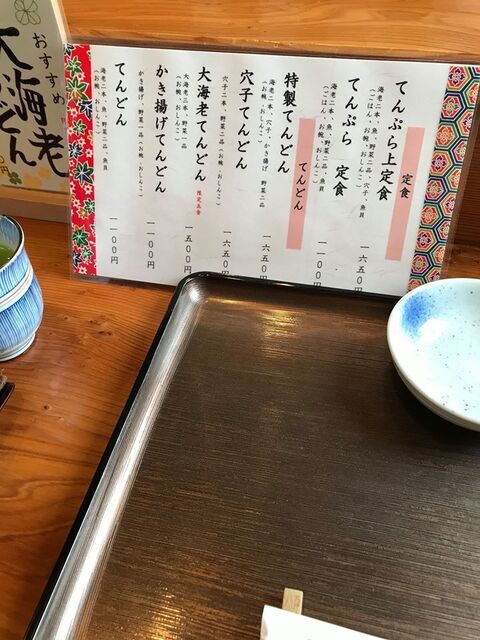 定食
てんぷら上定食
海老二本、魚、野菜二品、穴子、魚貝
（ごはん、お椀、おしんこ）
一六五〇円
てんぷら 定食
海老二本、魚、野菜二品、魚貝
（ごはん、お椀、おしんこ）
一一〇〇円
てんどん
特製てんどん
海老二本、穴子、かき揚げ、野菜二品
（お椀・おしんこ）
一六五〇円
穴子てんどん
穴子二本、野菜二品（お椀・おしんこ）
一六五〇円
大海老てんどん 限定五食
大海老三本、野菜一品
（お椀・おしんこ）
一五〇〇円
かき揚げてんどん
かき揚げ、野菜一品（お椀・おしんこ）
一一〇〇円
てんどん
海老二本、魚、野菜一品、魚貝
（お椀・おしんこ）
一一〇〇円
おすすめ
大海老